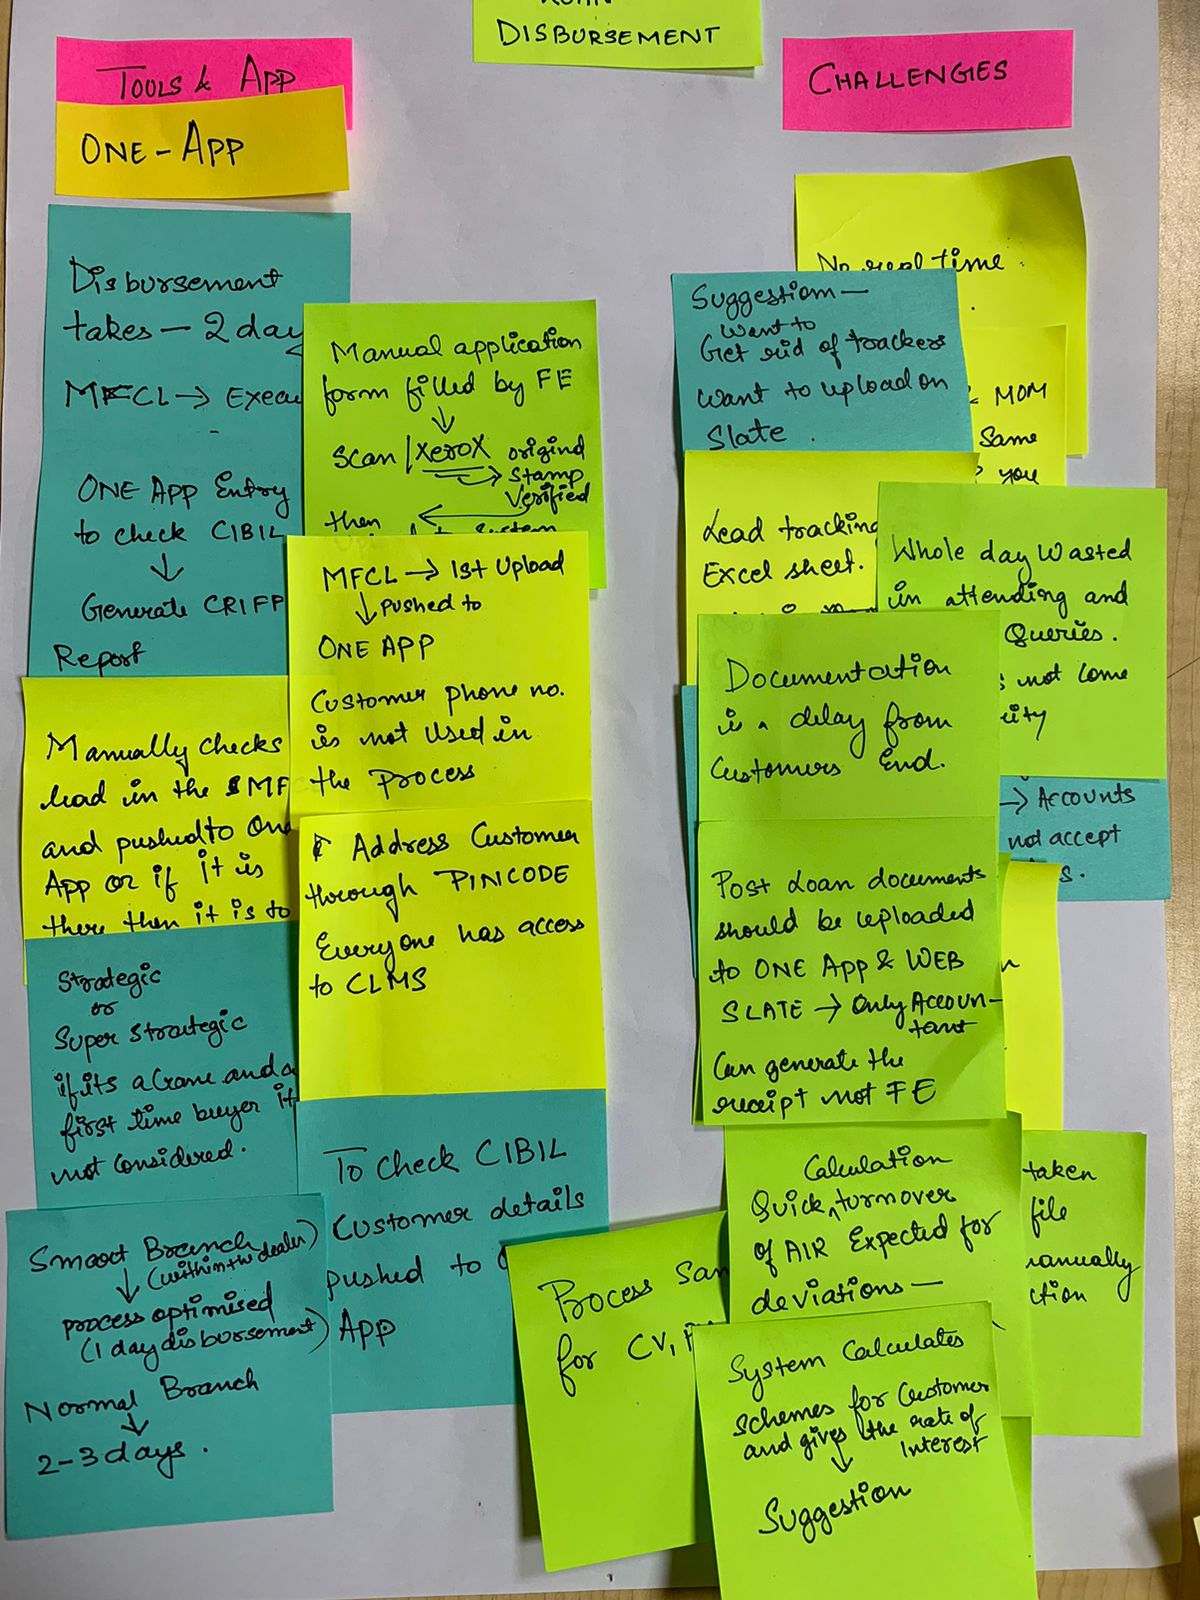 DISBURSEMENT
TOOLS & APP
ONE-APP
Disbursement
takes — 2 day
MFCL → Execu
ONE APP Entry
to check CIBIL
↓
Generate CRIFP
Report
Manually checks
lead in the MF
and pushed to One
App or if it is
there then it is to
Strategic
or
Super Strategic
if its a Crane and a
first time buyer it
not considered.
Smart Branch
↓ (within the dealer)
process optimised
(1 day disbursement)
Normal Branch
↓
2-3 days.
Manual application
form filled by FE
↓
Scan / XeroX origind
→ Stamp
Verified
then ←
System
MFCL → Ist Upload
↓ pushed to
ONE APP
Customer phone no.
is not used in
the process
Address Customer
through PINCODE
Everyone has access
to CLMS
To check CIBIL
Customer details
pushed to
App
CHALLENGES
No real time
Suggestion —
want to
Get rid of trackers
want to upload on
Slate.
& MOM
Same
you
Lead tracking
Excel sheet.
Whole day wasted
in attending and
Queries.
not come
Documentation
is a delay from
Customers End.
→ Accounts
not accept
Post Loan documents
should be uploaded
to ONE APP & WEB
SLATE → Only Accoun-
tant
Can generate the
receipt not FE
Calculation
Quick turnover
of AIR Expected for
deviations —
taken
file
manually
ction
Process San
for CV,
System Calculates
schemes for Customer
and gives the rate of
↓ Interest
Suggestion